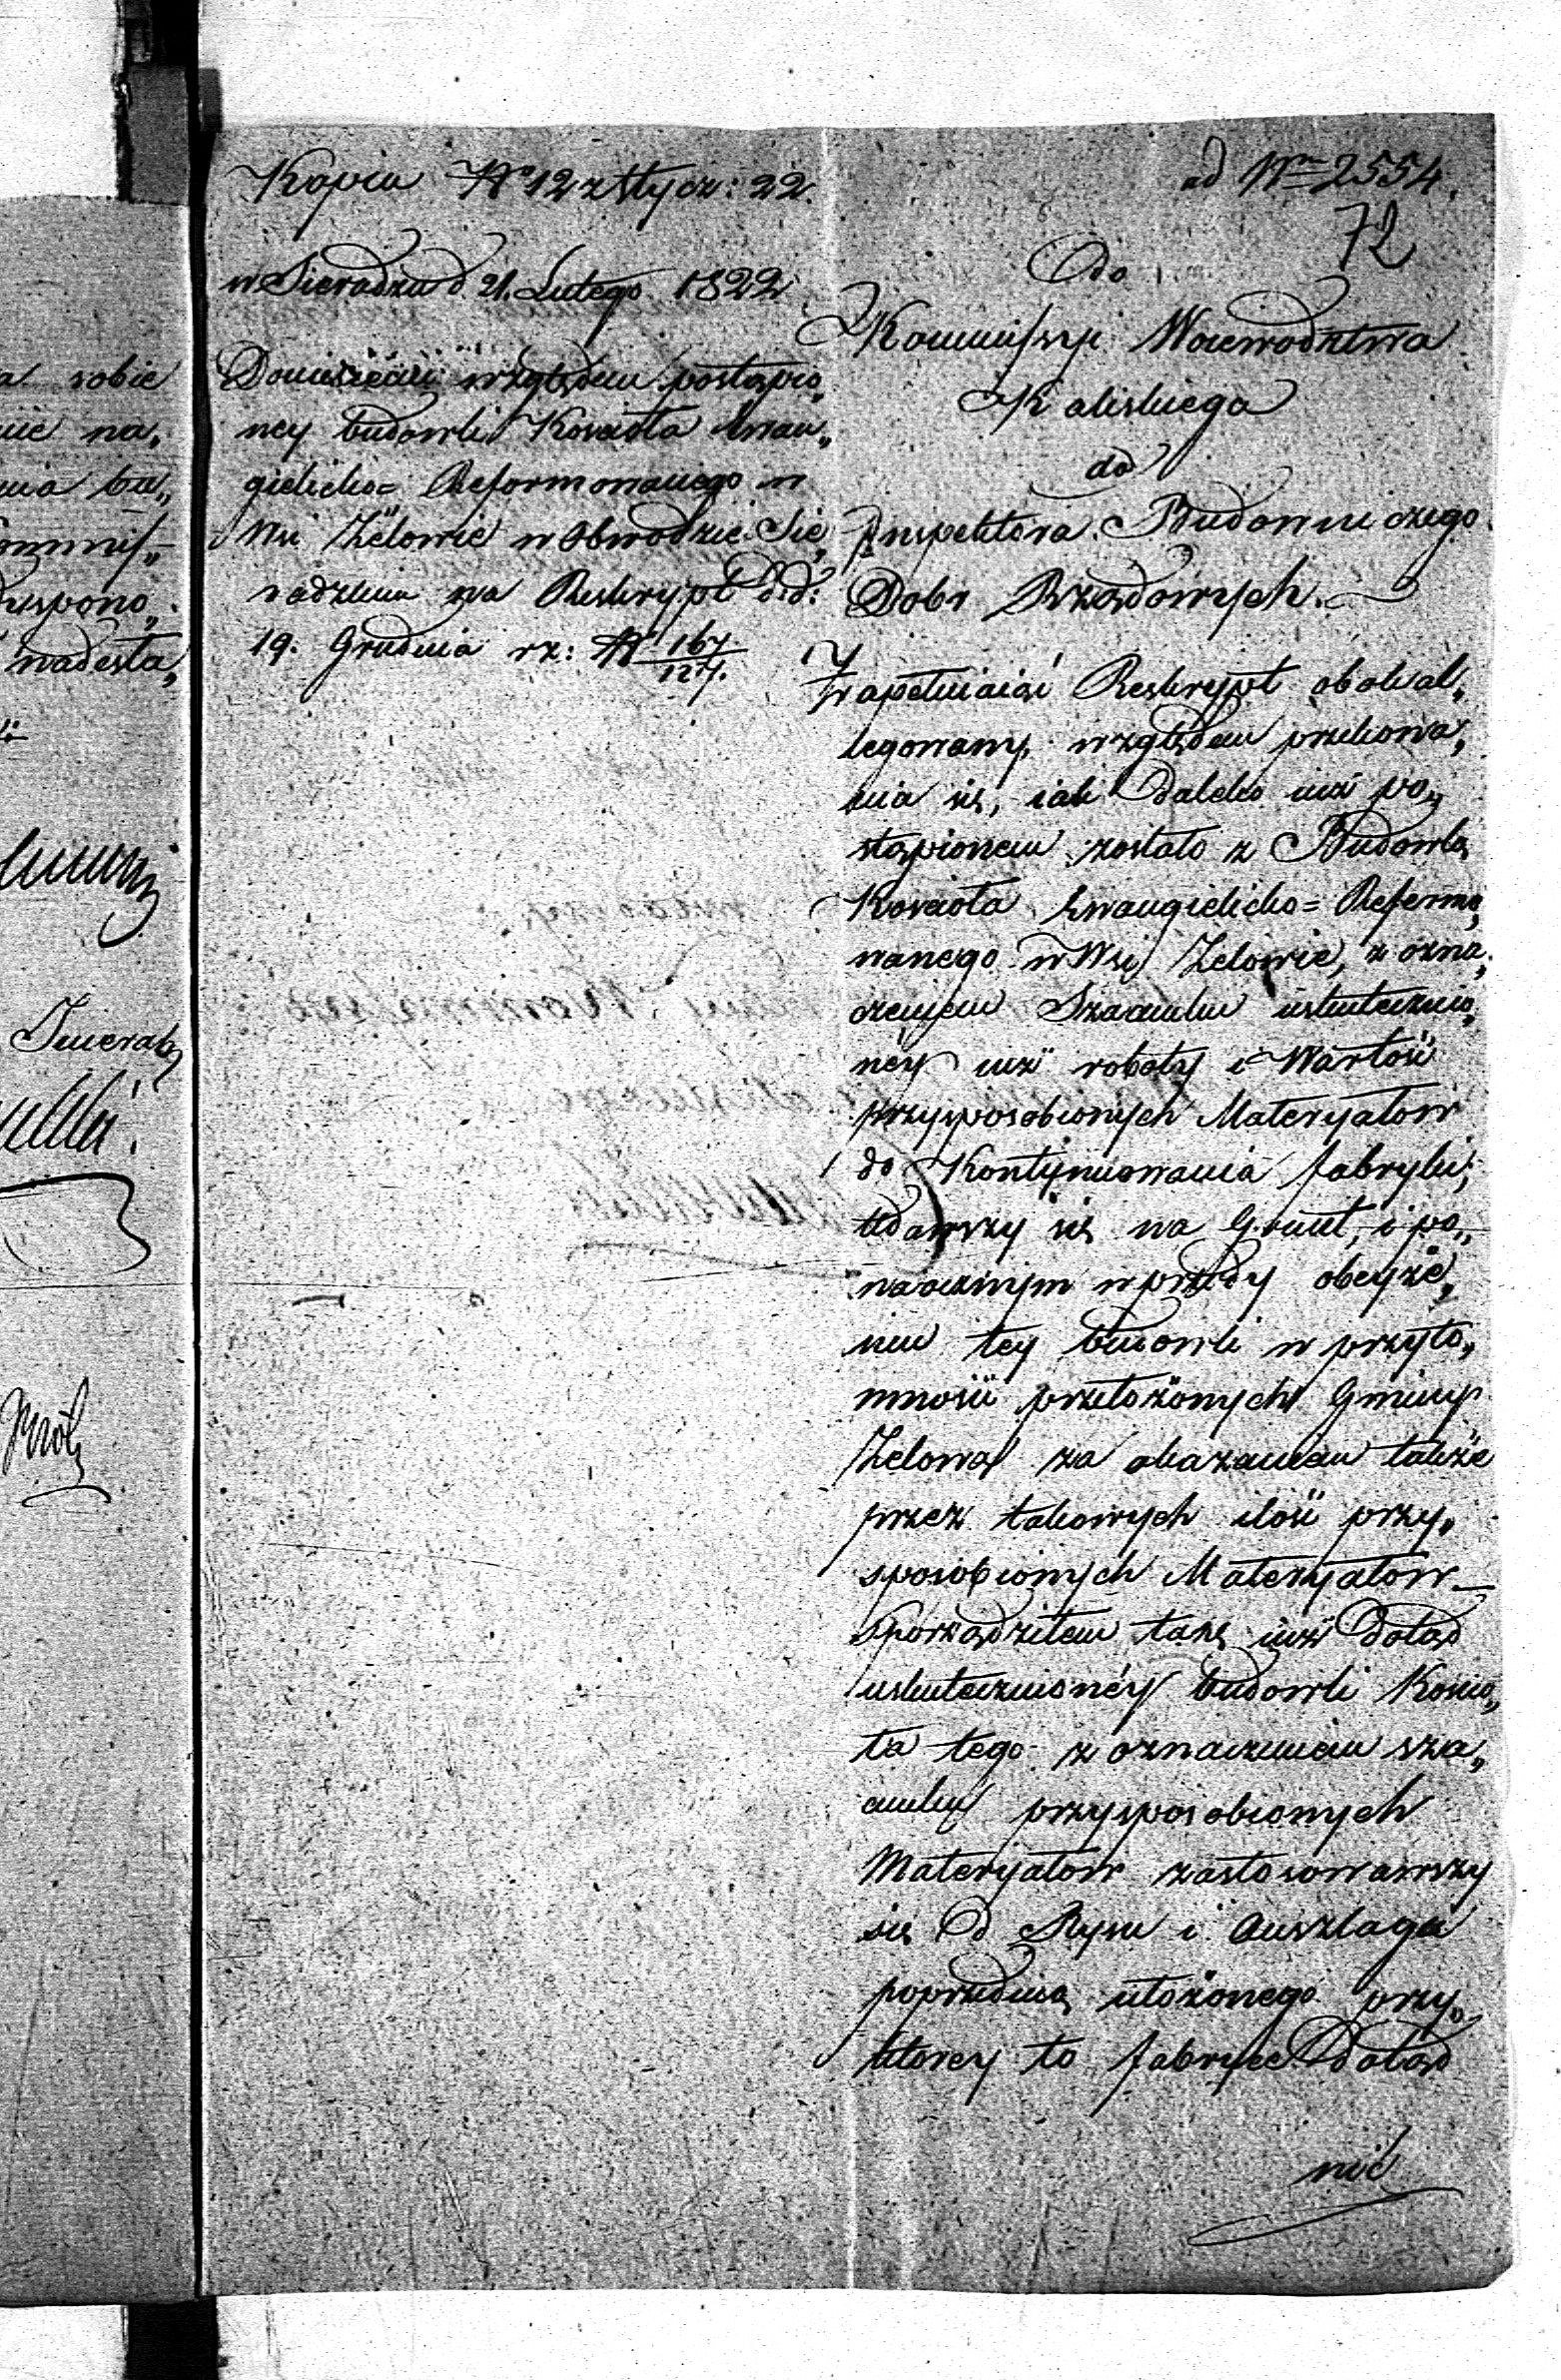 a sobie
nie na„
nia bu„
ommis„
respono„
nadesła„
Kopia No 12 z Stycz: 22.
w Sieradzu d. 21. Lutego 1822
Doniesienie względem postąpio„
ney budowli Kościoła Ewan„
gielicko= Reformowanego w
Wsi Zelowie w Obwodzie Sie„
radzkim na Reskrypt d.d.
19. Grudnia rz: No 167/127.
ad Nrm 2554.
72
Do
Kommissyi Woiewodztwa
Kaliskiego
do
Inspektora Budowniczego
Dobr Rządowych.
Zapełniaiąc Reskrypt obokal„
legowany, względem przekona„
nia się, iak daleko iuż po„
stąpionem zostało z Budowlą
Kościoła Ewangielicko= Reformo„
wanego w Wsi Zelowie, z ozna„
czeniem Szacunku uskutecznio„
néy iuż roboty i Wartości
przysposobionych Materyałow
do Kontynuowania fabryki,
udawszy się na Grunt, i po
naocznym wprzódy obeyże„
niu tey budowli w przyto„
mności przełożonych Gminy
Zelowa za okazaniem także
przez takowych ilości przy„
sposobionych Materyałow
sporządziłem taxę iuż dotąd
uskutecznionéy budowli Kościo„
ła tego z oznaczeniem sza„
cunku przysposobionych
Materyałow zastosowawszy
się d Rysu i Auszlagu
poprzednio ułożonego przy
ktorey to fabryce dotąd
nic